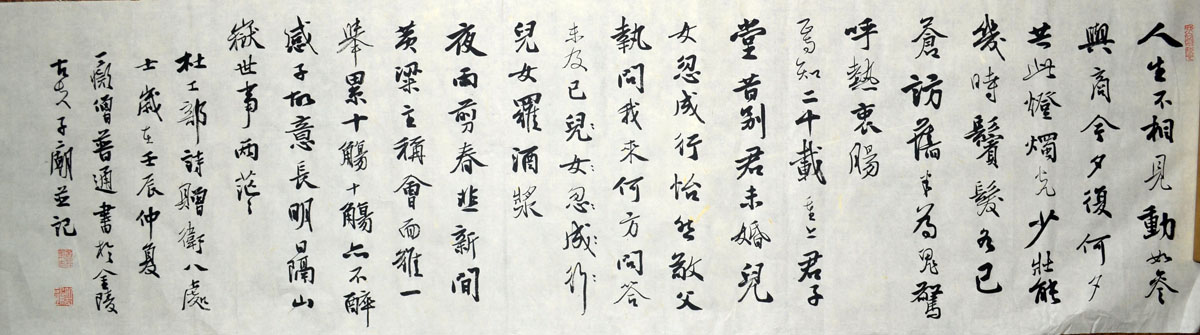 人生不相見動如參
與商今夕復何夕
共此燈燭光少壯能
幾時鬢髮各已
蒼訪舊半為鬼驚
呼熱衷腸
焉知二十載重上君子
堂昔別君未婚兒
女忽成行怡然敬父
執問我來何方問答
未及已兒女忽成行
兒女羅酒漿
夜雨剪春韭新間
黃梁主稱會面難一
舉累十觴十觴亦不醉
感子故意長明日隔山
嶽世事兩茫々
杜工部詩贈衛八處
士歲在壬辰仲夏
一癡僧普通書於金陵
古夫子廟並記